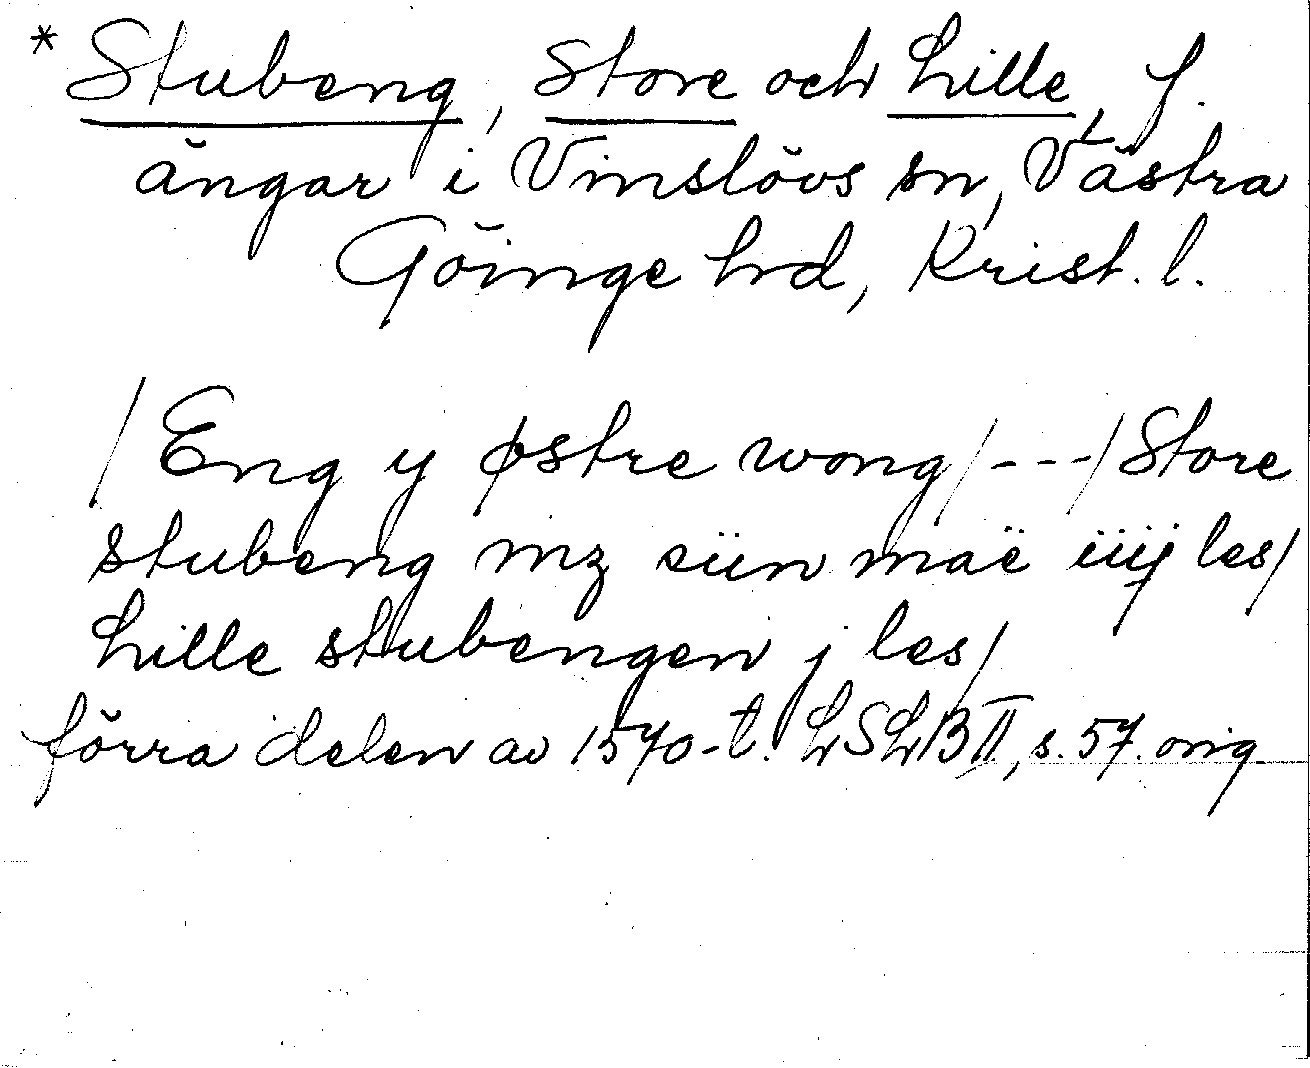 * Stubeng, Store och Lille, f.
ängar i Vinslövs sn, Västra
Göinge hd, Krist. l.
/Eng y østre wong/---/Store
stubeng mz siin maë iiij les/
Lille stubengen j les/
förra delen av 1570-t. LSLB II, s. 57. orig.